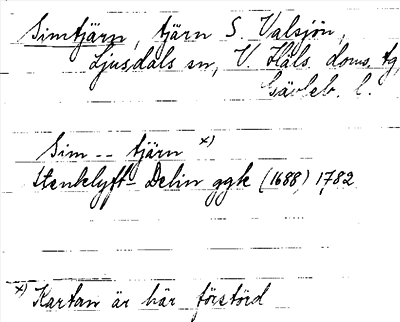 Simtjärn, tjärn S. Valsjön,
Ljusdals sn, V. Häls. doms. tg,
Gävleb. l.
Sim -- tjärn x)
Stenklyft- Delin ggk (1688) 1782
x) Kartan är här förstörd